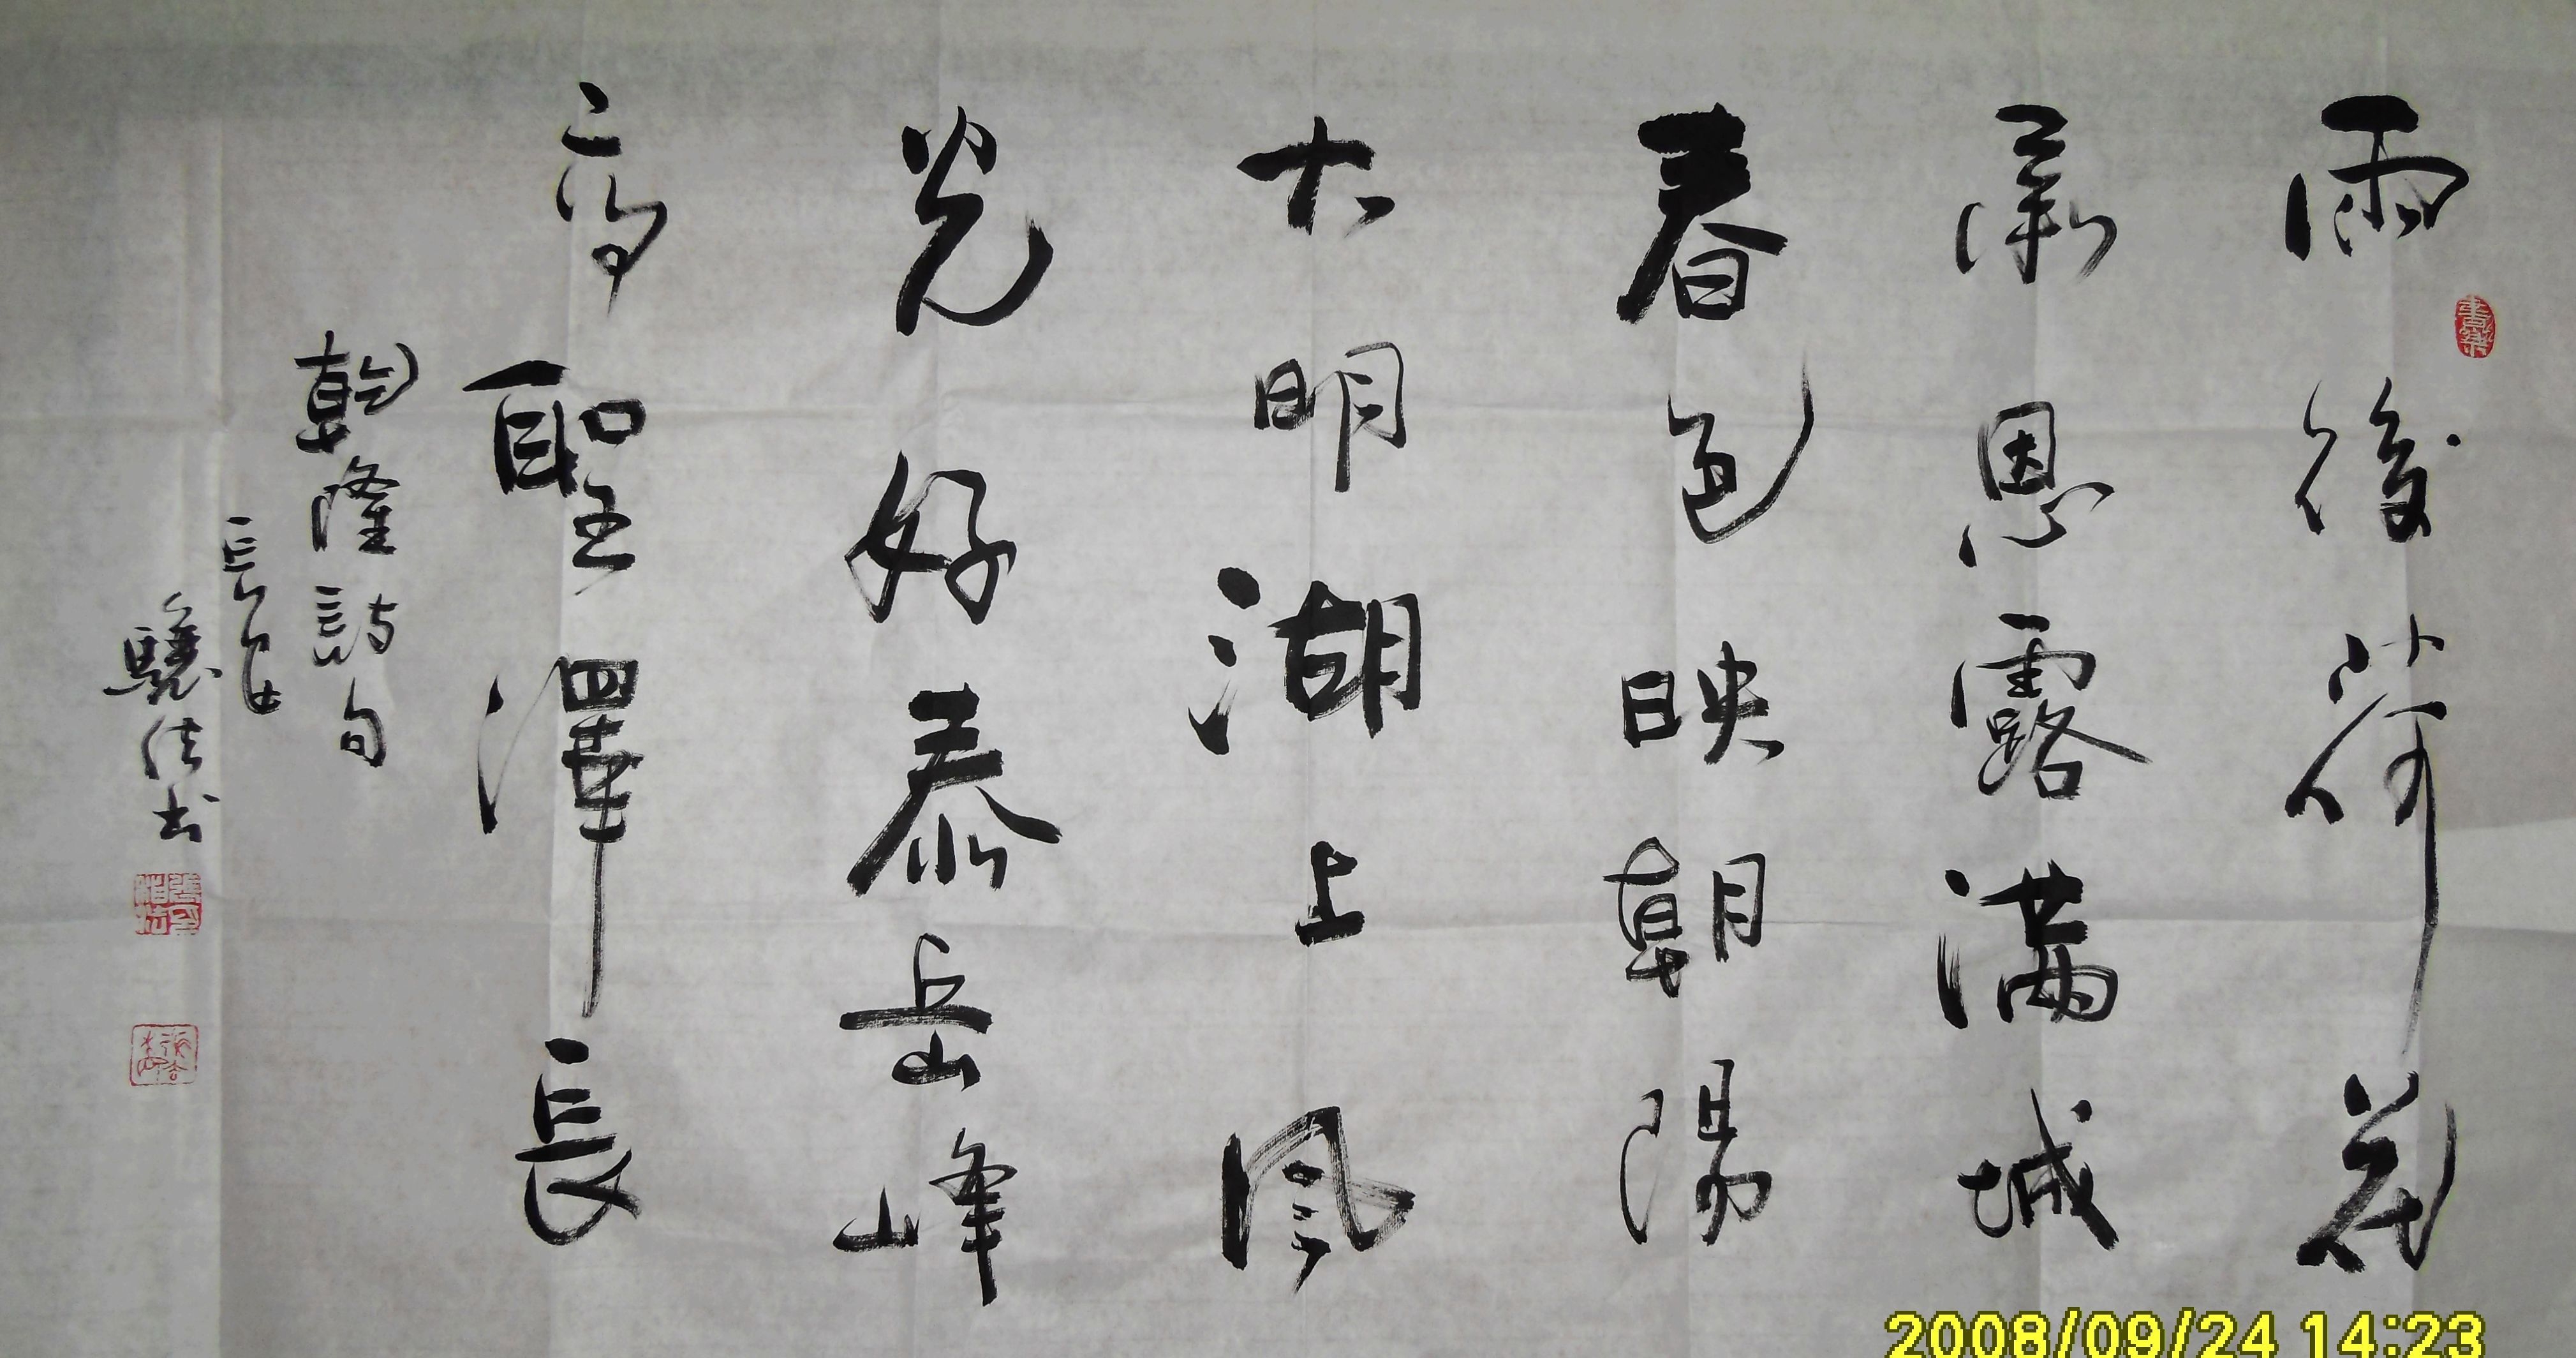 雨後荷花
承恩露滿城
春色映朝陽
大明湖上風
光好泰岳峰
高聖澤長
乾隆詩句
長
驥 書
2008/09/24 14:23